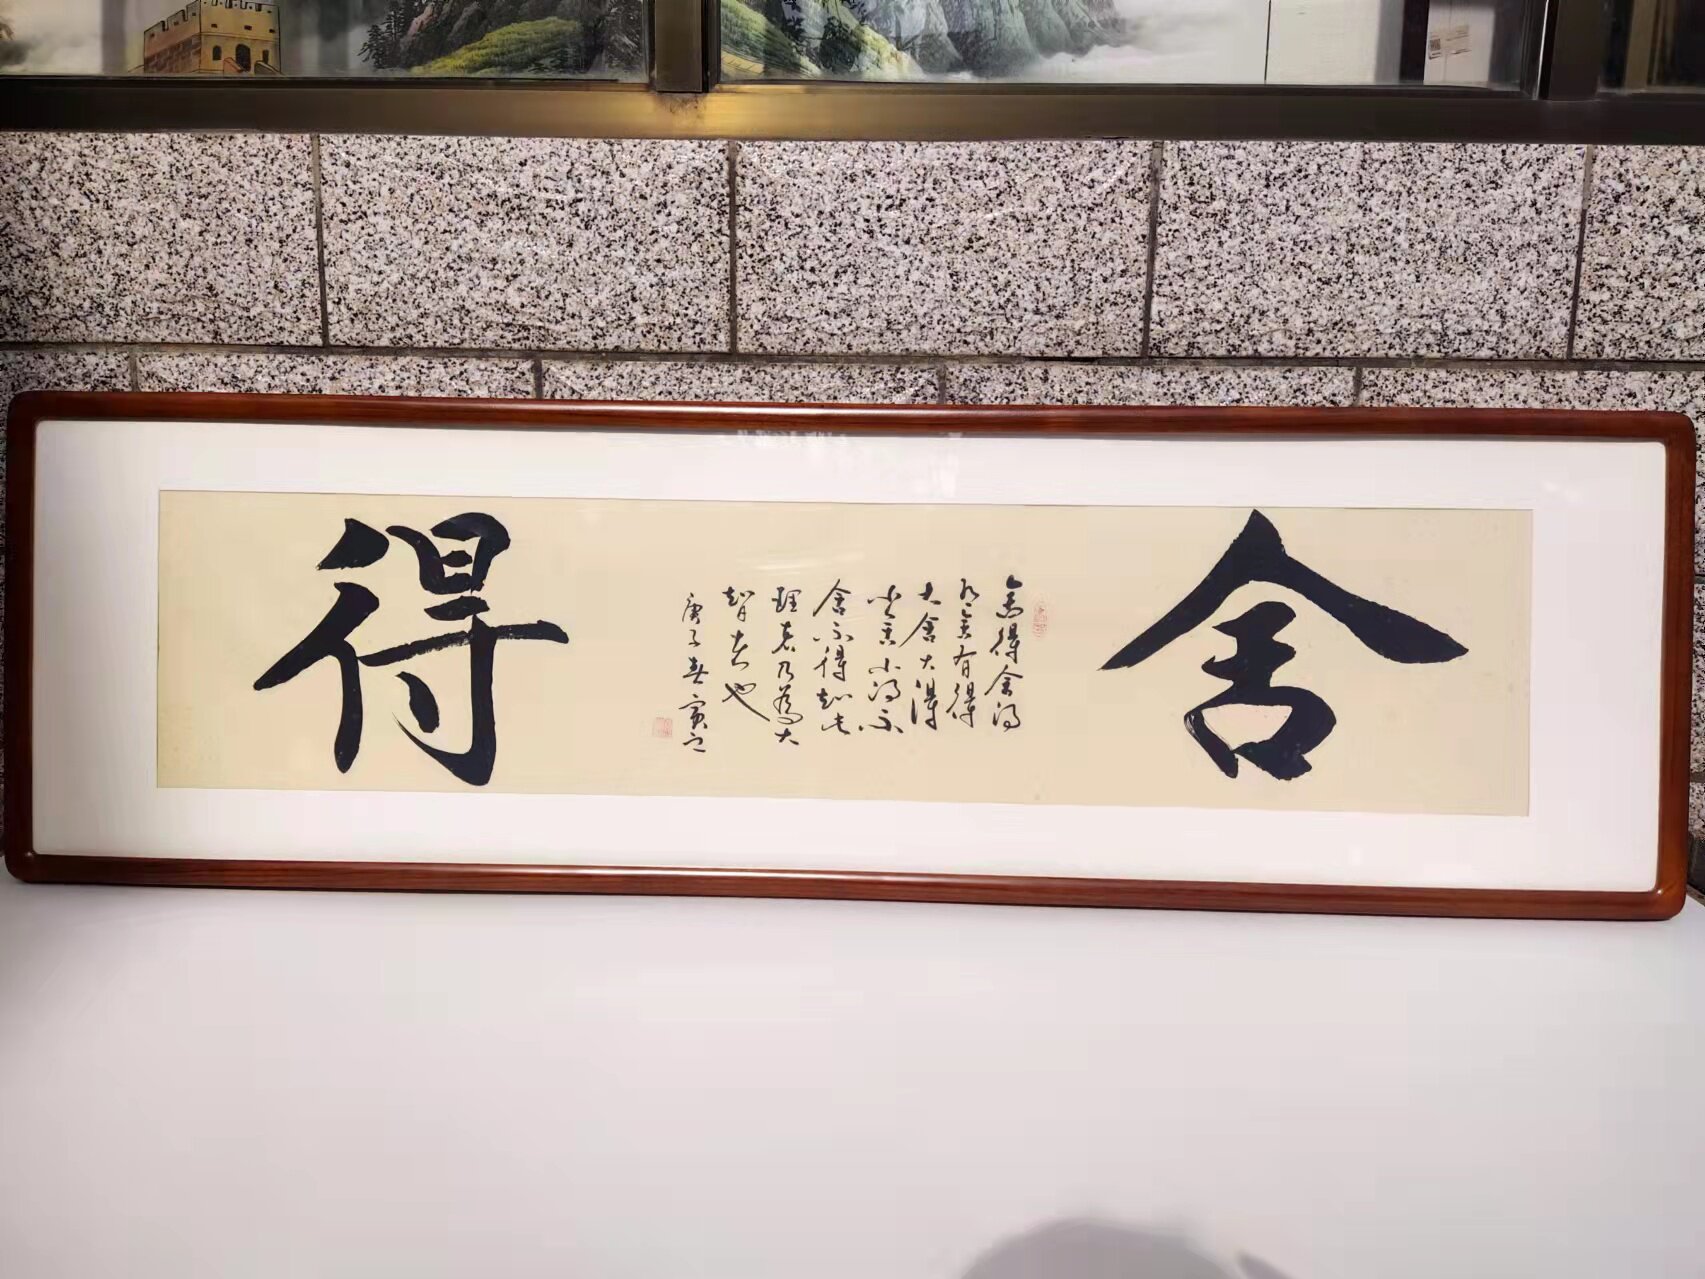 舍
舍得舍得
有舍有得
大舍大得
小舍小得不
舍不得知此
理者乃為大
智者也
庚子春寅之
得